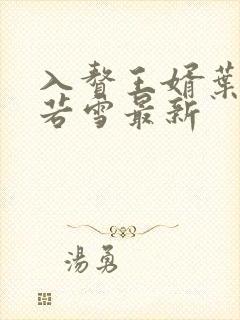 入贅王婿葉
若雪最新
湯勇